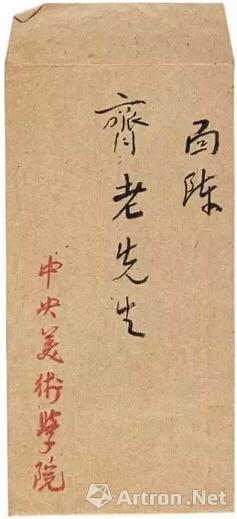 面陈
齊老先生
中央美術學院
Artron.Net
雅昌艺术网